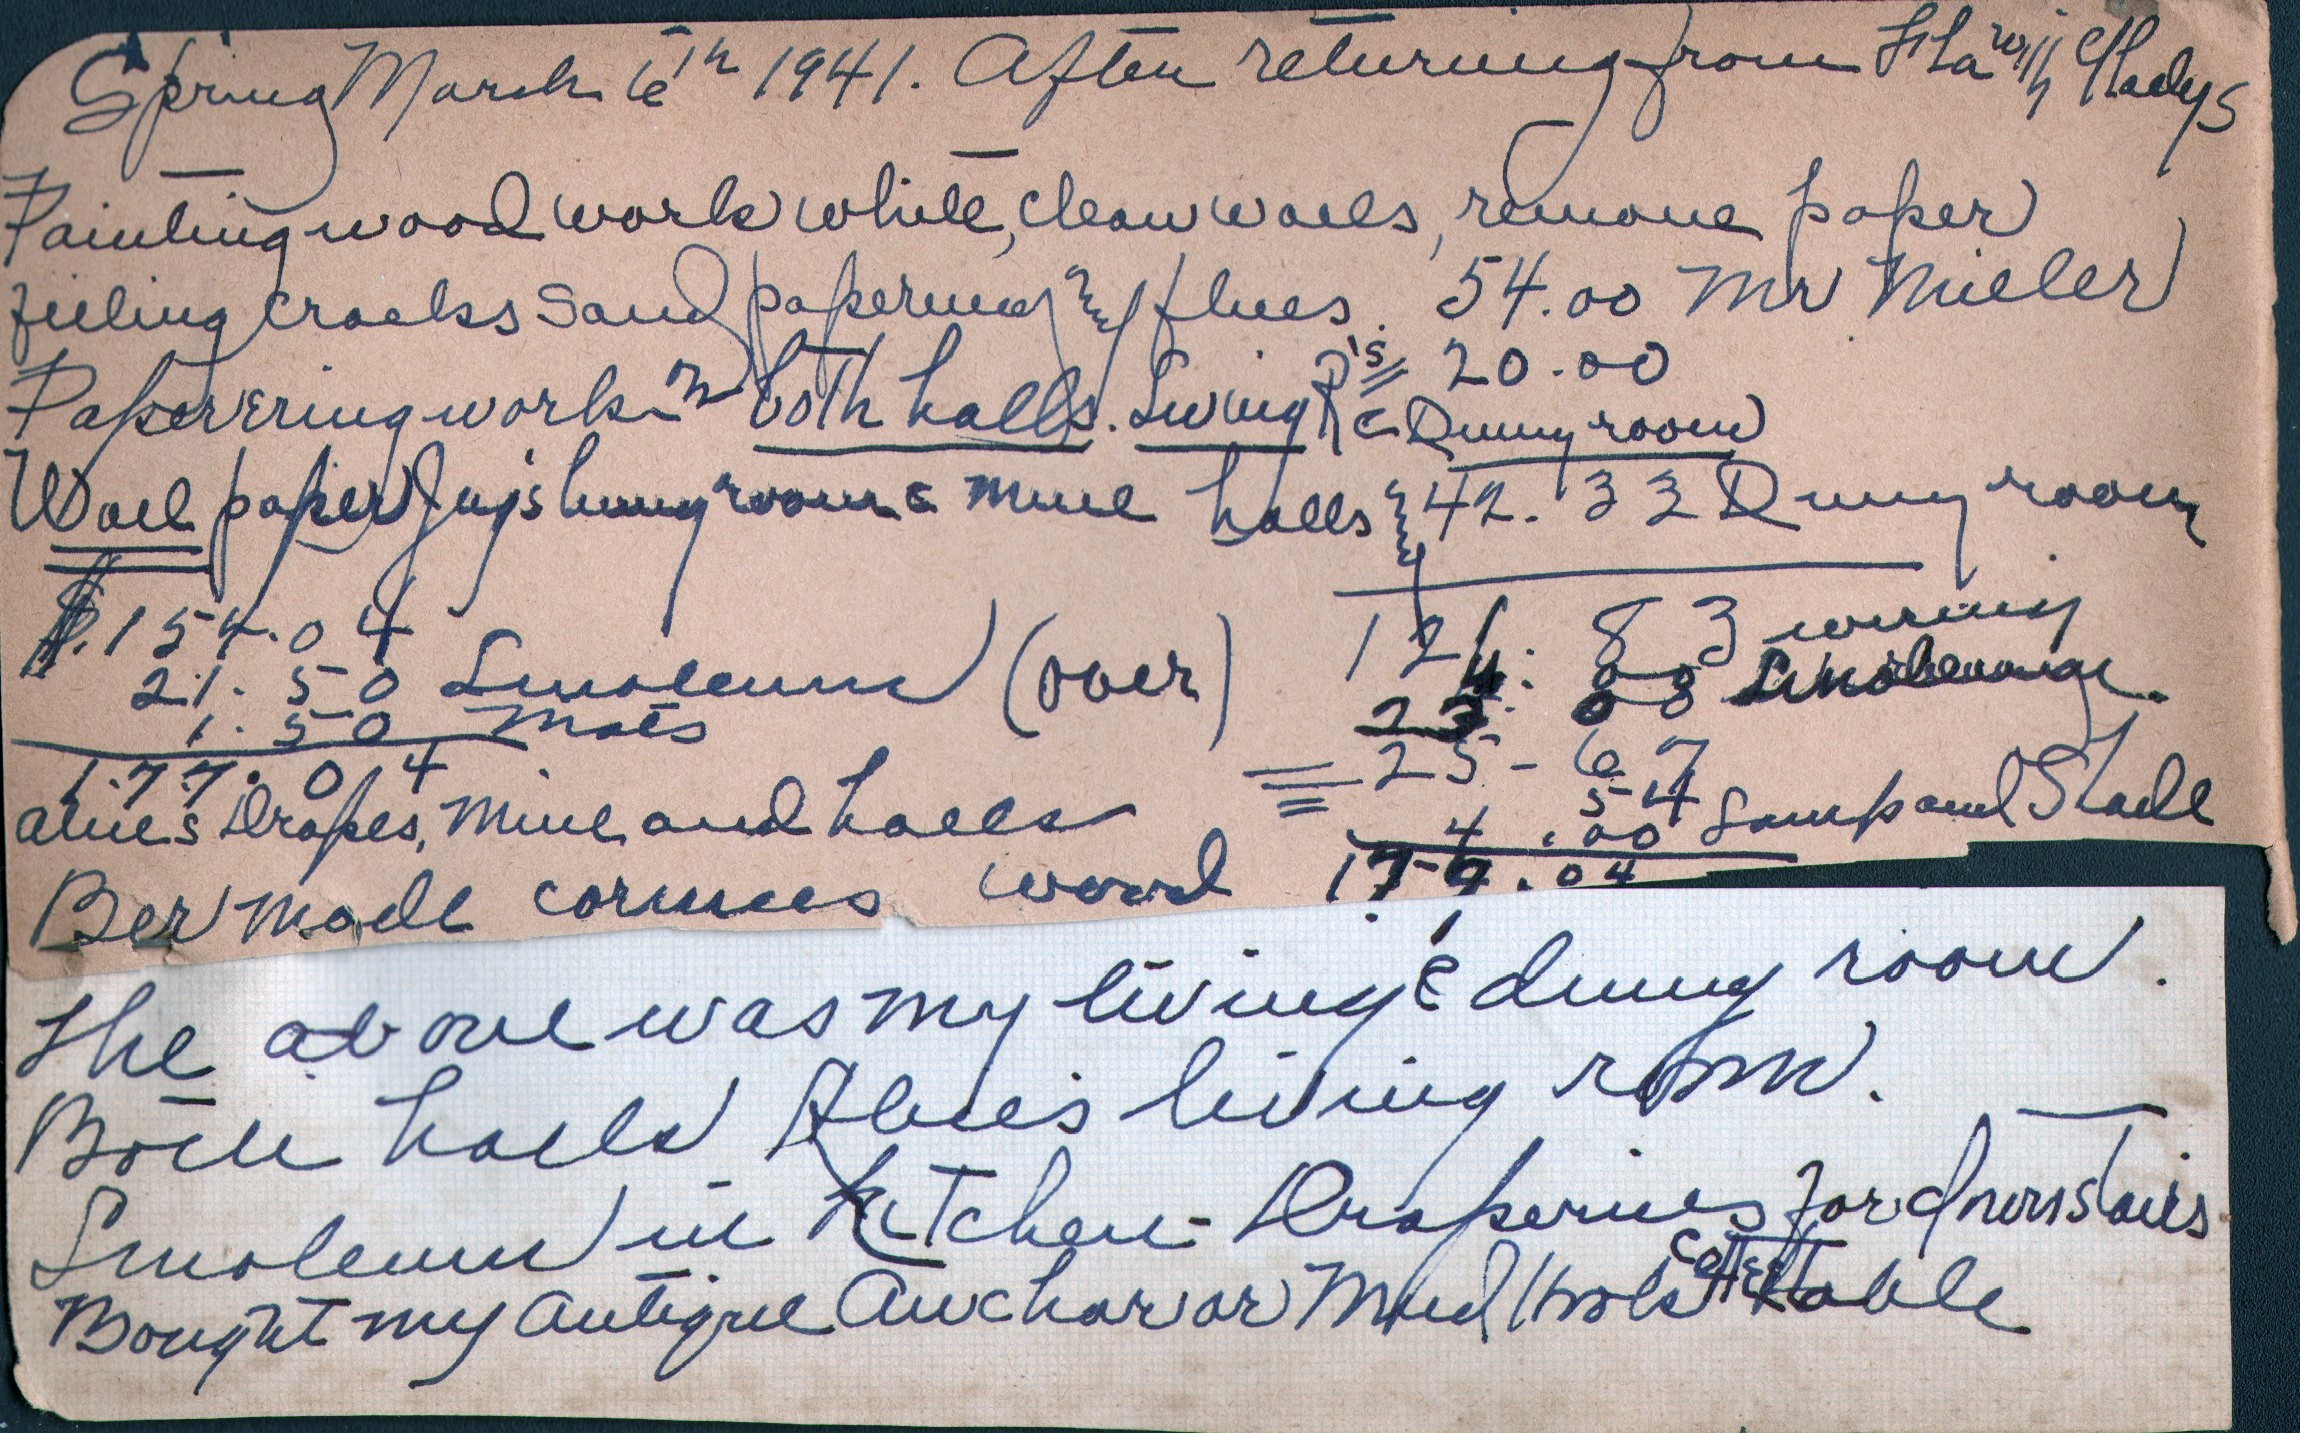 Spring March 6th 1941. After returning from Fla with Gladys
Painting wood work white, clean walls, remove paper
filling cracks sand papering flues. 54.00 Mr Miller
Paperering work in both halls. Living R's 20.00
& Dining room
Wall paper living room & mine halls 42.33 Dining room
$.154.04
21.50 Linoleum (over)
1.50 Mats
177.04
121.83 wiring
4.00
00 Linoleum
25-67
54
4.00 Lamp and Shade
177.04
Drapes, mine and halls
Ber made cornices wood
The above was my living & dining room.
Both halls living room.
Linoleum in Kitchen - Draperies for downstairs
Bought my antique Anchor coffee table